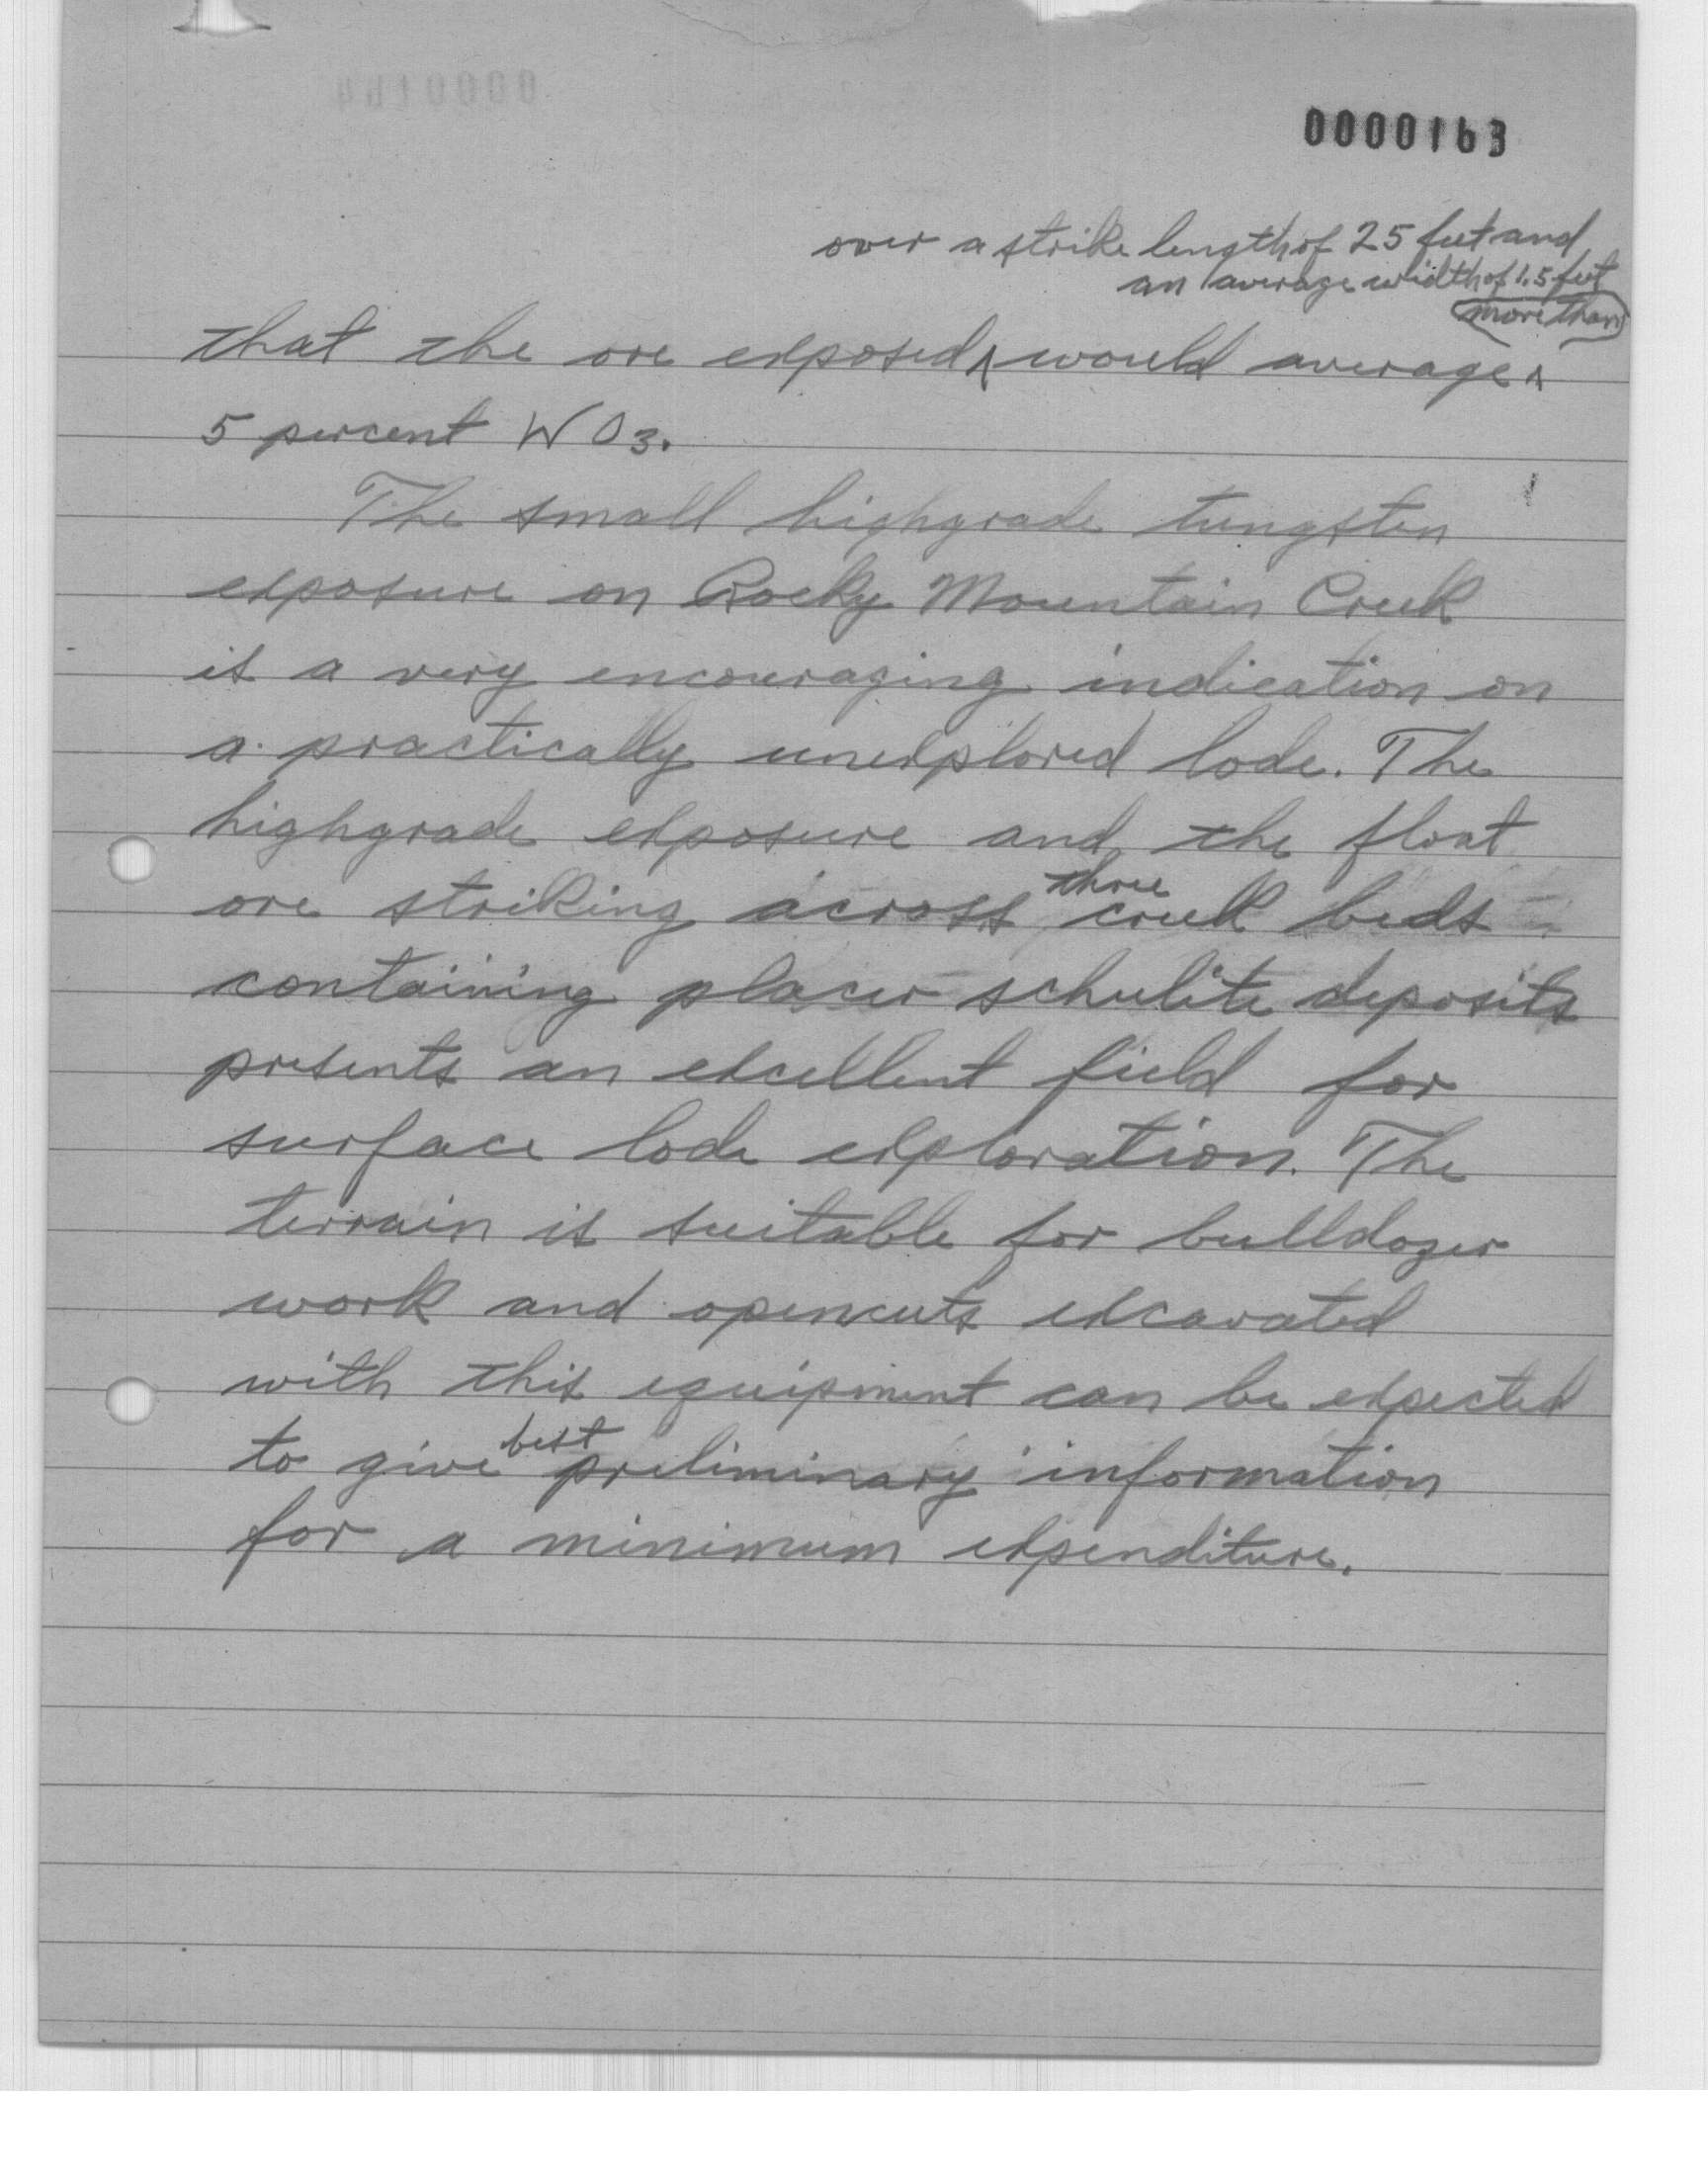 0000163
over a strike length of 25 feet and
an average width of 1.5 feet
more than
that the ore exposed ^ would average ^
5 percent WO3.
The small highgrade tungsten
exposure on Rocky Mountain Creek
is a very encouraging indication on
a practically unexplored lode. The
highgrade exposure and the float
three
ore striking across creek beds
containing placer scheelite deposits
presents an excellent field for
surface lode exploration. The
terrain is suitable for bulldozer
work and opencuts excavated
with this equipment can be expected
best
to give preliminary information
for a minimum expenditure.